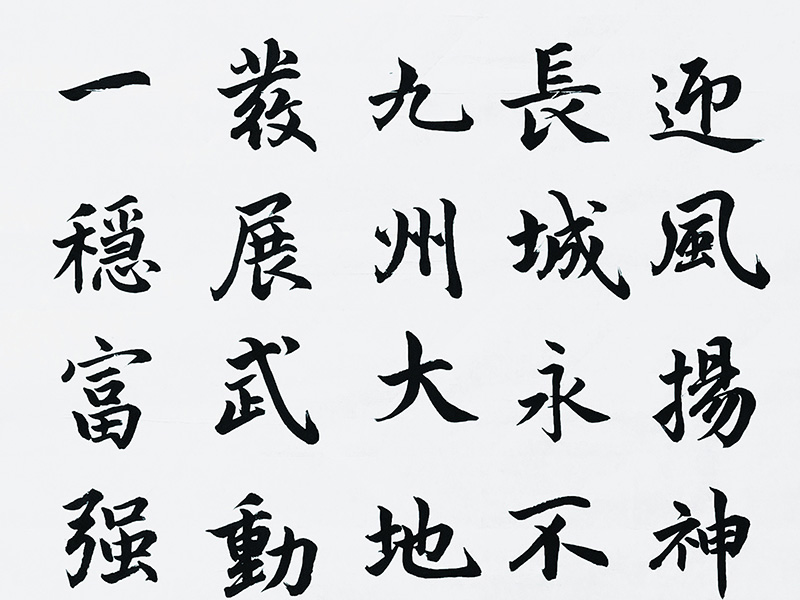 迎風揚神
長城永不
九州大地
發展武動
一穩富强